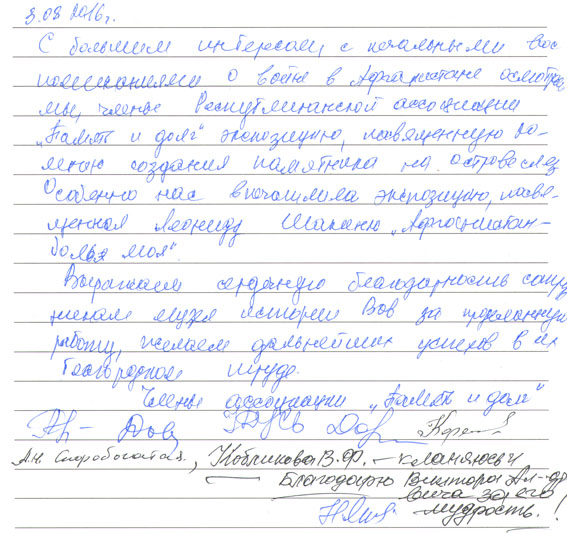 3.08.2016г.
С большим интересом, с печальными вос
поминаниями о войне в Афганистане осмотре
мы, члены Республиканской ассоциации
"Память и долг" экспозицию, посвященную
создания памятника на острове слез
Особенно нас впечатлила экспозицию, посвя-
щенная Леониду "Афганистан-
боль моя".
Выражаем сердечную благодарность сотру
никам музея истории Вов за проделанную
работу, желаем дальнейших успехов в их
благородном труде.
Члены ассоциации "Память и долг"
А.Н. Скоробогатая, В.Ф. – кланяюсь и
Благодарю Виктора Ал-др
вича за его
мудрость!